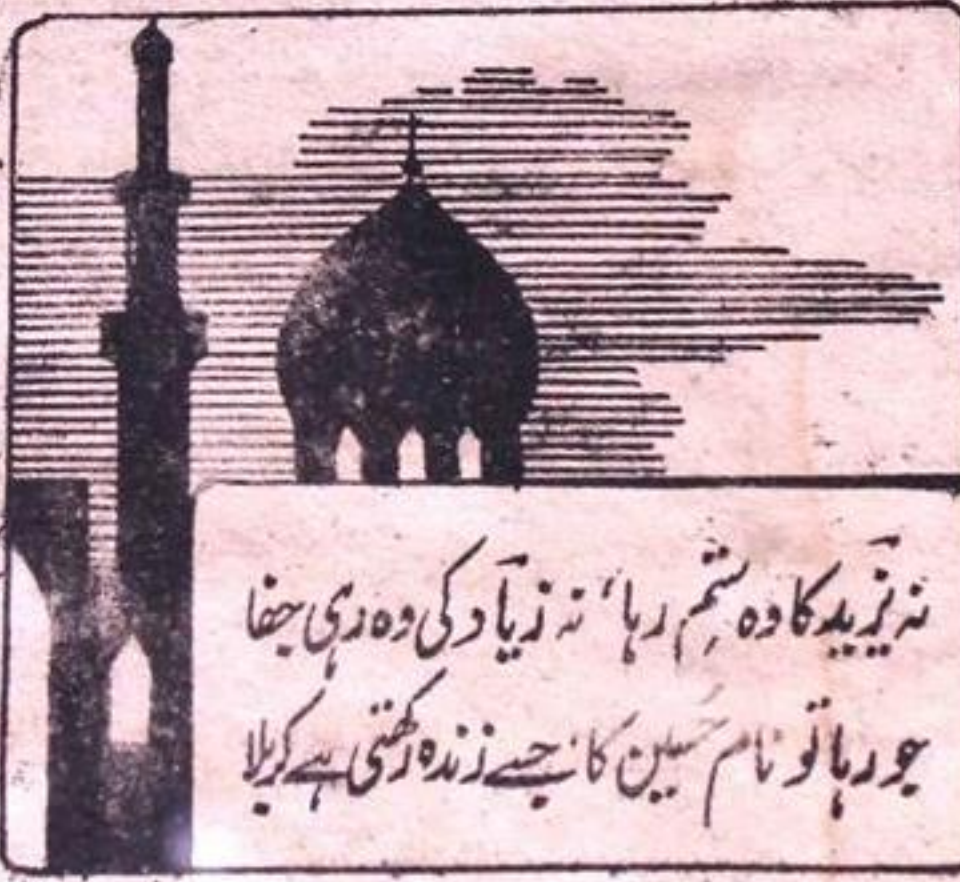 نہ یزید کا وہ ستم رہا، نہ زیاد کی وہ رہی جفا
جو رہا تو نام حسین کا، جسے زندہ رکھتی ہے کربلا